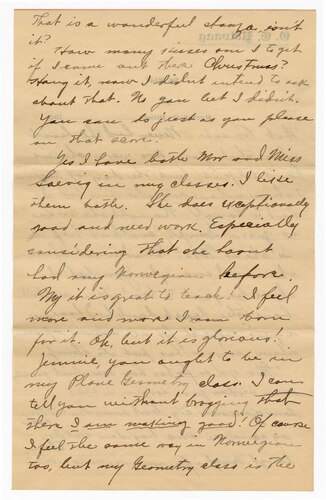 That is a wonderful stanza isn't
it?
How many kisses am I to get
if I come out there Christmas?
Hang it, now I didn't intend to ask
about that. No you bet I didn't.
You can do just as you please
on that score.
Yes I have both Mr and Miss
in my classes. I like
them both. She does exceptionally
good and neat work. Especially
considering that she hasn't
had any Norwegian before.
My it is great to teach! I feel
more and more I was born
for it. Oh, but it is glorious!
Jennie you ought to be in
my Plane Geometry class. I can
tell you without bragging that
there I am making good! Of course
I feel the same way in Norwegian
too, but my Geometry class is the